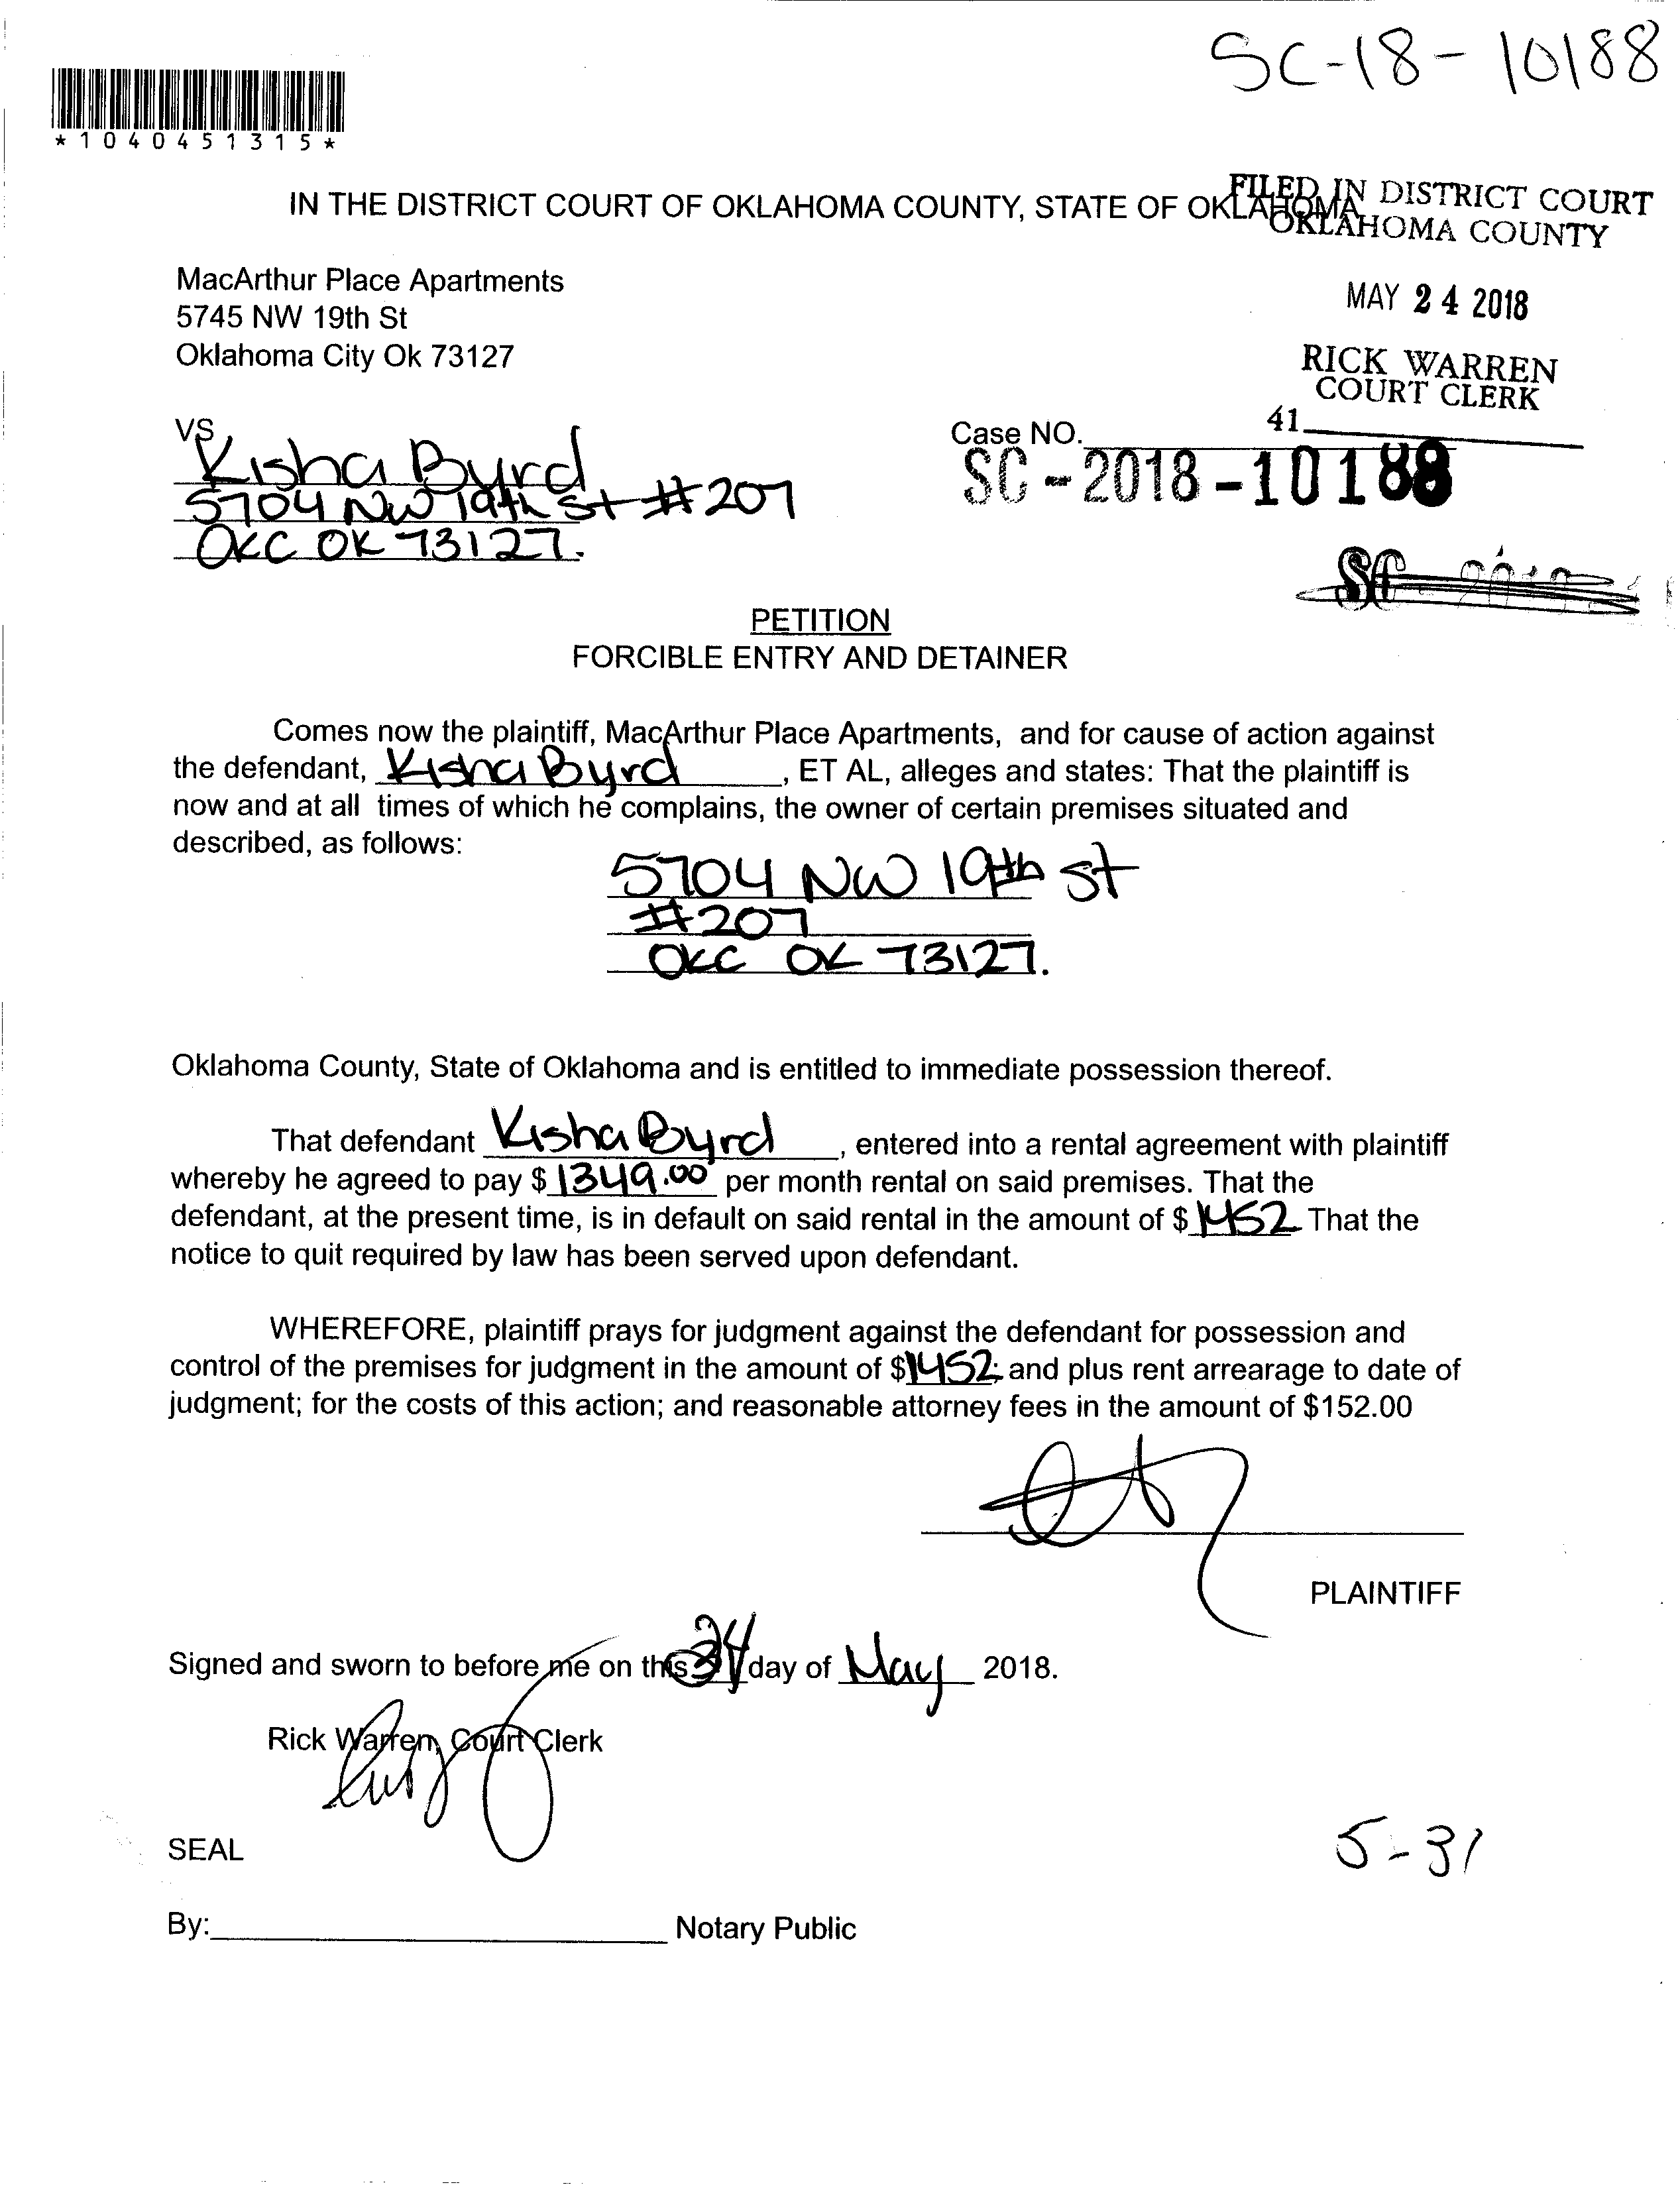 SC-18-10188
*1040451315*
FILED IN DISTRICT COURT
OKLAHOMA COUNTY
IN THE DISTRICT COURT OF OKLAHOMA COUNTY, STATE OF OKLAHOMA
MacArthur Place Apartments
5745 NW 19th St
Oklahoma City Ok 73127
MAY 24 2018
RICK WARREN
COURT CLERK
41
VS
Kisha Byrd
5704 NW 19th St #207
OKC OK 73127.
Case NO.
SC-2018-10188
SC
PETITION
FORCIBLE ENTRY AND DETAINER
Comes now the plaintiff, MacArthur Place Apartments, and for cause of action against
the defendant, Kisha Byrd, ET AL, alleges and states: That the plaintiff is
now and at all times of which he complains, the owner of certain premises situated and
described, as follows:
5704 NW 19th St
#207
OKC OK 73127.
Oklahoma County, State of Oklahoma and is entitled to immediate possession thereof.
That defendant Kisha Byrd, entered into a rental agreement with plaintiff
whereby he agreed to pay $ 1349.00 per month rental on said premises. That the
defendant, at the present time, is in default on said rental in the amount of $ 1452 That the
notice to quit required by law has been served upon defendant.
WHEREFORE, plaintiff prays for judgment against the defendant for possession and
control of the premises for judgment in the amount of $1452; and plus rent arrearage to date of
judgment; for the costs of this action; and reasonable attorney fees in the amount of $152.00
PLAINTIFF
Signed and sworn to before me on this 24 day of May 2018.
Rick Warren, Court Clerk
SEAL
5-31
By: Notary Public